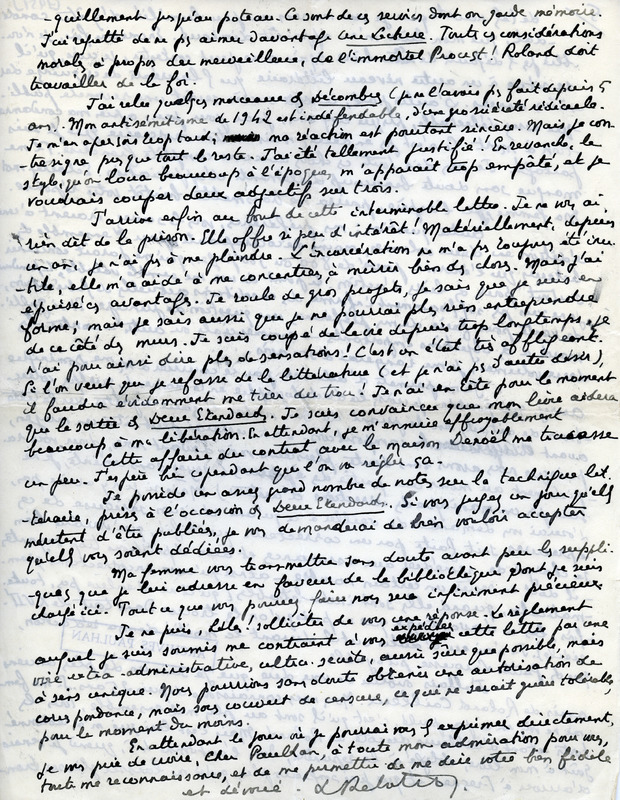 -quillement jusqu'au poteau. Ce sont de ces services dont on garde mémoire.
J'ai regretté de ne pas aimer davantage Une Lecture. Toutes ces considérations
morales à propos du merveilleux, de l'immortel Proust ! Roland doit
travailler de la foi.
J'ai relu quelques morceaux des Décombres (je ne l'avais pas fait depuis 5
ans). Mon antisémitisme de 1942 est indéfendable, d'une grossièreté ridicule.
Je m'en aperçois trop tard; ma réaction est pourtant sincère. Mais je con-
-tresigne presque tout le reste. J'ai été tellement justifié ! En revanche, le
style, qu'on loua beaucoup à l'époque, m'apparaît trop empâté, et je
voudrais couper deux adjectifs sur trois.
J'arrive enfin au bout de cette interminable lettre. Je ne vous ai
rien dit de la prison. Elle offre si peu d'intérêt ! Matériellement, depuis
un an, je n'ai pas à me plaindre. L'incarcération ne m'a pas toujours été inu-
-tile, elle m'a aidé à me concentrer, à mûrir bien des choses. Mais j'ai
épuisé ces avantages. Je roule de gros projets, je sais que je suis en
forme; mais je sais aussi que je ne pourrai plus rien entreprendre
de ce côté des murs. Je suis coupé de la vie depuis trop longtemps, je
n'ai pour ainsi dire plus de sensations ! C'est un état très affligeant.
Si l'on veut que je refasse de la littérature (et je n'ai pas d'autre désir),
il faudra évidemment me tirer du trou ! Je n'ai en tête pour le moment
que la sortie des Deux Etendards. Je suis convaincu que mon livre aidera
beaucoup à ma libération. En attendant, je m'ennuie effroyablement
Cette affaire du contrat avec la maison Denoël me tracasse
un peu. J'espère bien cependant que l'on va régler ça.
Je possède un assez grand nombre de notes sur la technique lit-
-téraire, prises à l'occasion des Deux Etendards. Si vous jugez un jour qu'elles
méritent d'être publiées, je vous demanderai de bien vouloir accepter
qu'elles vous soient dédiées.
Ma femme vous transmettra sans doute avant peu les suppli-
-ques que je lui adresse en faveur de la bibliothèque dont je suis
chargé ici. Tout ce que vous pourrez faire nous sera infiniment précieux.
Je ne puis, hélas ! solliciter de vous une réponse. Le règlement
auquel je suis soumis me contraint à vous expédier cette lettre par une
voie extra-administrative, ultra-secrète, aussi sûre que possible, mais
à sens unique. Nous pourrions sans doute obtenir une autorisation de
correspondance, mais sous couvert de censure, ce qui ne serait guère tolérable,
pour le moment du moins.
En attendant le jour où je pourrai vous l'exprimer directement,
je vous prie de croire, Cher Paulhan, à toute mon admiration pour vous,
toute ma reconnaissance, et de me permettre de me dire votre bien fidèle
et dévoué. L Rebatet.